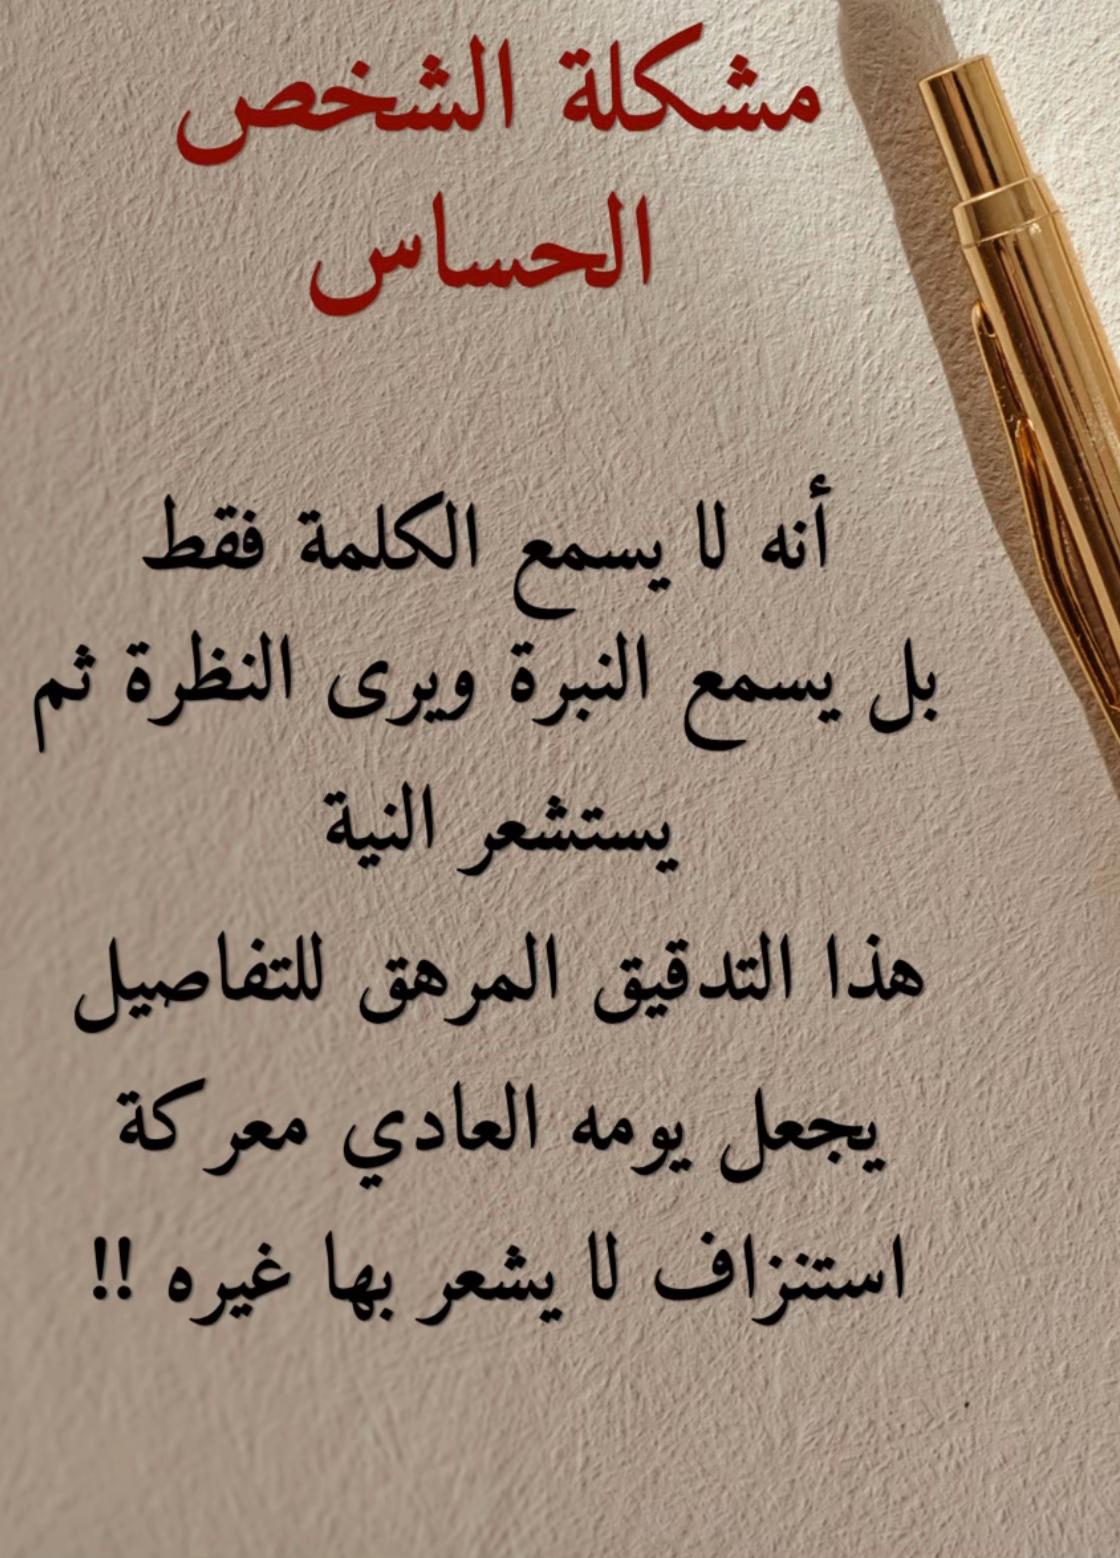 مشكلة الشخص
الحساس
أنه لا يسمع الكلمة فقط
بل يسمع النبرة ويرى النظرة ثم
يستشعر النية
هذا التدقيق المرهق للتفاصيل
يجعل يومه العادي معركة
استنزاف لا يشعر بها غيره !!